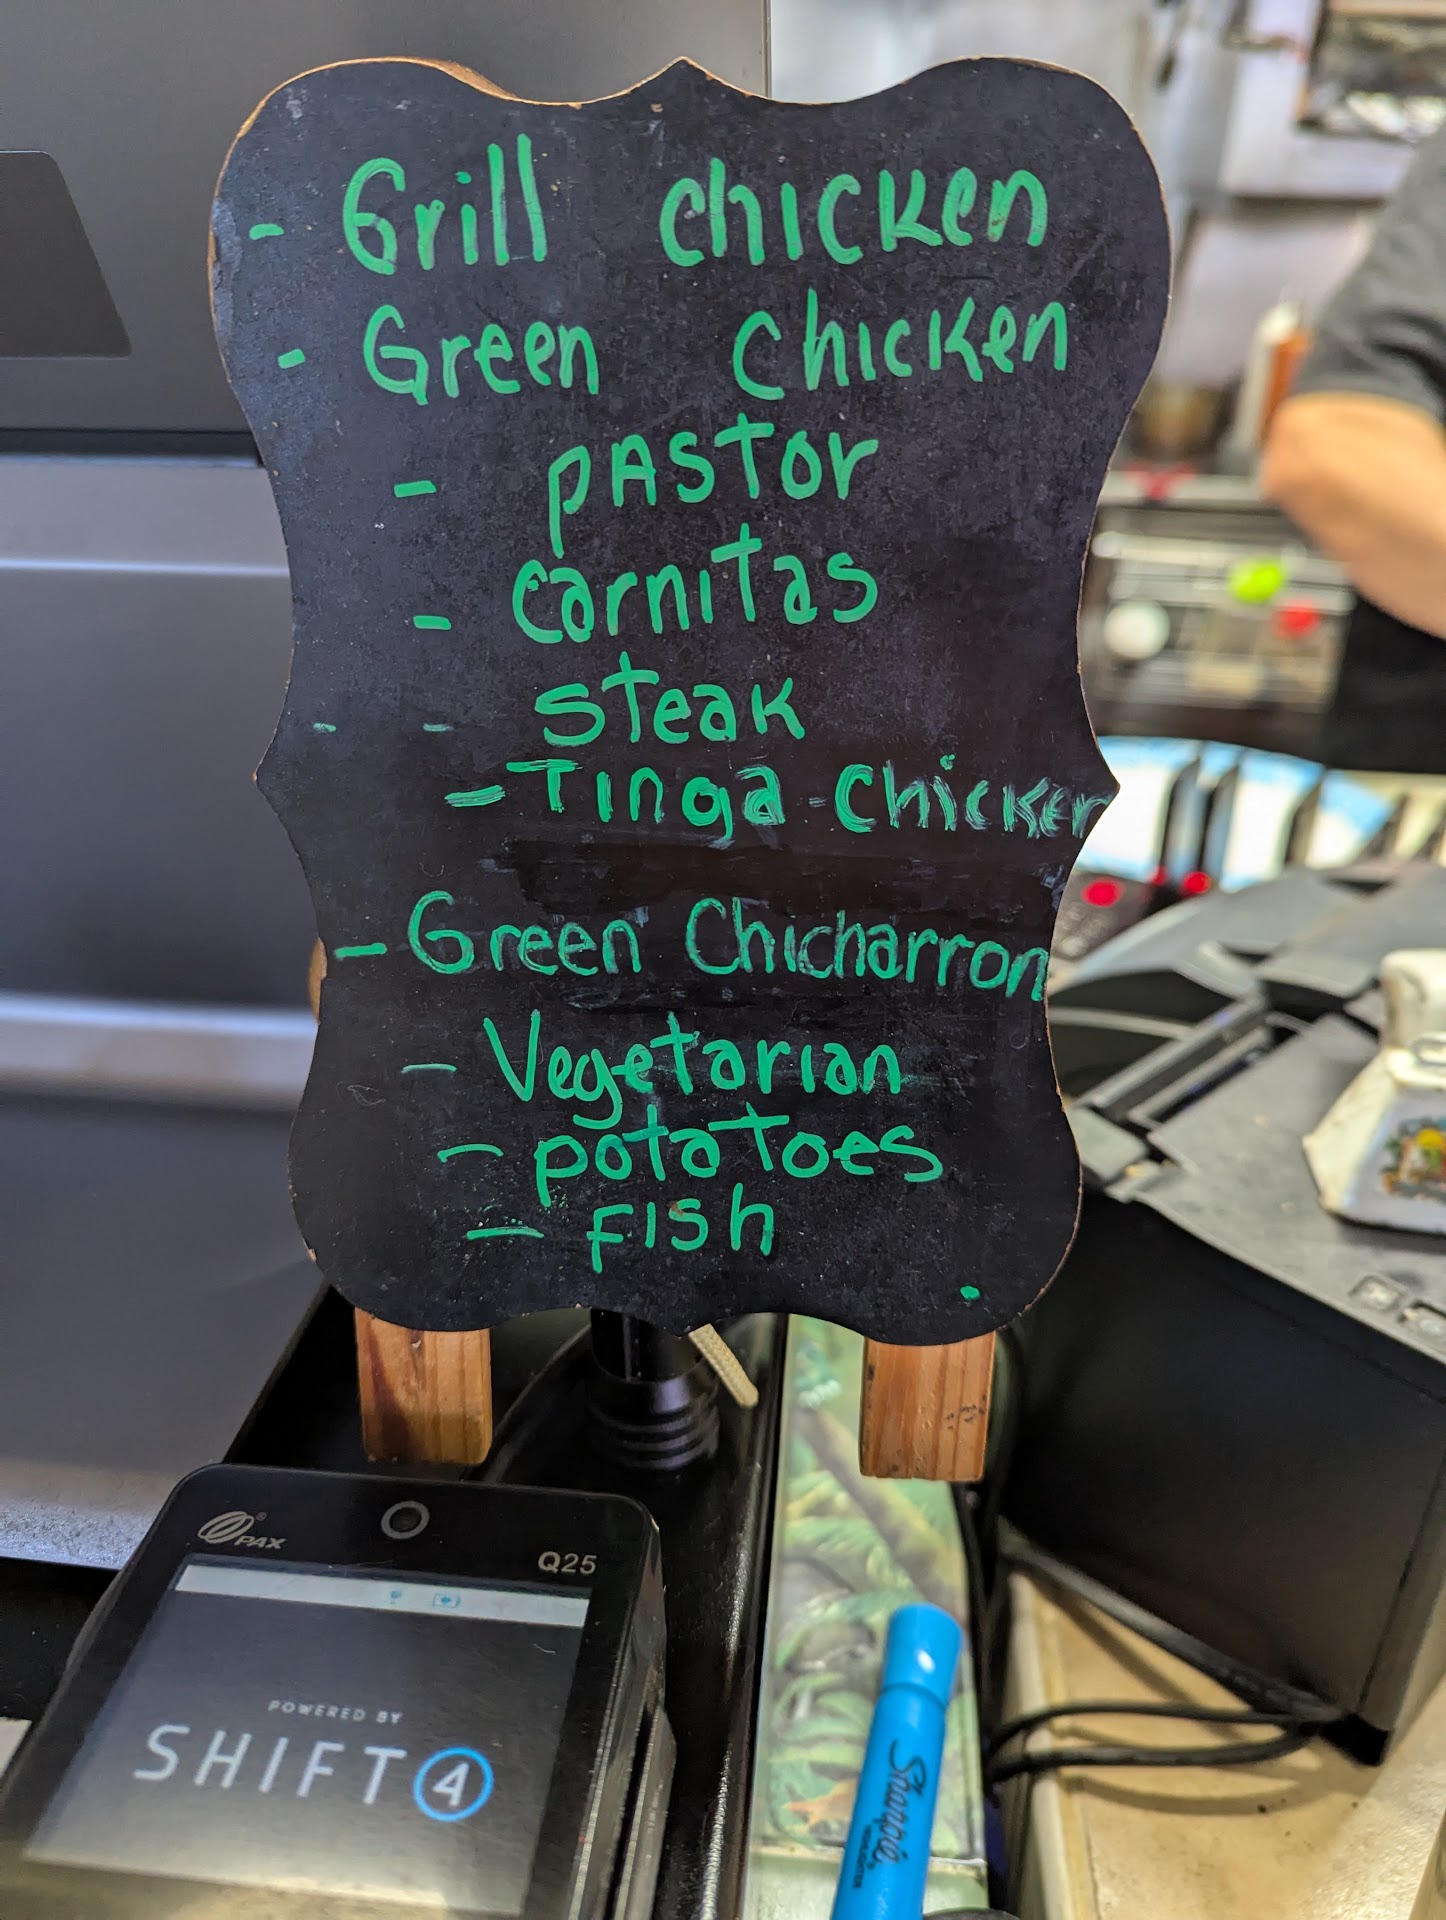 - Grill chicken
- Green chicken
- pastor
- carnitas
- - steak
- Tinga - chicken
- Green Chicharron
- Vegetarian
- potatoes
- fish
PAX
Q25
POWERED BY
SHIFT4
Sharpie